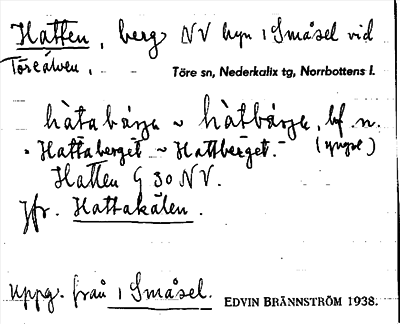 Hatten, berg NV byn i Småsel vid
Töreälven.
Töre sn, Nederkalix tg, Norrbottens l.
hàtabärje ~ hàtbärje, bf. n.
"Hattaberget ~ Hattberget." (yngre)
Hatten G 30 NV.
Jfr. Hattakälen.
Uppg. från i Småsel.
EDVIN BRÄNNSTRÖM 1938.